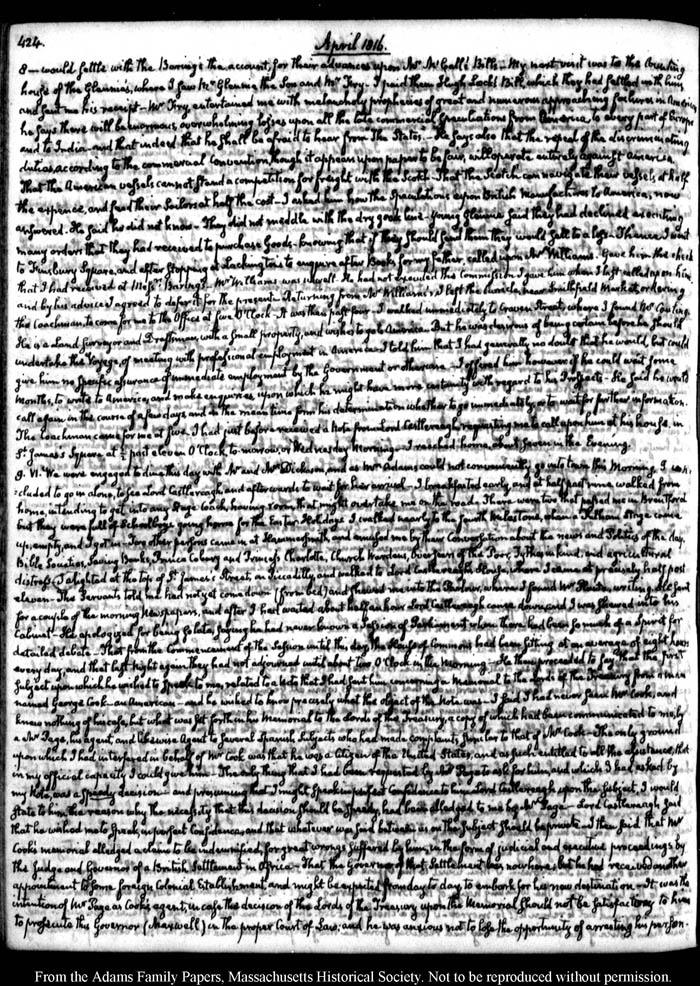 424.
April 1816.
8 — would settle with the Barings the account, for their advances upon Mr. McCall's Bills — My next visit was to the Counting
house of the Glennies, where I saw Mr. Glennie the Son and Mr. Fry. I paid them Hugh Lock's Bill, which they had settled with him
and sent me his receipt — Mr. Fry entertained me with melancholy prophecies of great and numerous approaching failures in America
he says there will be enormous, overwhelming losses upon all the late commercial speculations from America to every part of Europe
and to India — and that indeed he shall be afraid to hear from the States. — He says also that the repeal of the discriminating
duties, according to the commercial Convention, though it appears upon paper to be fair, will operate entirely against America
That the American vessels cannot stand a competition for freight with the Scotch — That the Scotch can navigate their vessels at half
the expence, and feed their Sailors at half the cost — I asked him how the speculations upon British Manufactures to America, now
answered. He said he did not know — They did not meddle with the dry goods line — Young Glennie said they had declined executing
many orders that they had received to purchase Goods — knowing that if they should send them they would sell to a loss — Thence I went
to Finsbury Square, and after stopping at Lackington's to enquire after Books for my father, called upon Mr. Williams. Gave him the check
that I had received at Messrs. Barings. Mr. Williams was unwell. He had not executed the Commission I gave him when I last called upon him,
and by his advice I agreed to defer it for the present. Returning from Mr. Williams's, I left the Carriage near Smithfield Market, ordering
the Coachman to come for me to the Office at five O'Clock. It was then past four — I walked immediately to Craven Street, where I found Mr.
He is a Land Surveyor and Draftsman, with a small property, and wishes to go to America. But he was desirous of being certain before he should
undertake the Voyage, of meeting with professional employment in America. I told him that I had generally no doubt that he would, but could
give him no specific assurance of immediate employment by the Government or otherwise — I offered him however if he could wait some
months, to write to America, and make enquiries upon which he might have more certainty with regard to his Prospects — He said he would
call again in the course of a few days, and in the mean time form his determination whether to go immediately, or to wait for further information.
The Coachman came for me at five. I had just before received a Note from Lord Castlereagh, requesting me to call upon him at his house, in
St. James's Square at ½ past eleven O'Clock to-morrow, or Wednesday Morning — I reached home about seven in the Evening.
9. VI. We were engaged to dine this day with Mr. and Mrs. Dickason, and as Mrs. Adams could not conveniently go into town this Morning I con-
cluded to go in alone, to see Lord Castlereagh, and afterwards to wait for her arrival — I breakfasted early, and at half past nine walked from
home, intending to get into any Stage Coach, having room, that might overtake me on the road. There were two that passed me in Brentford
but they were full of School boys going home for the Easter Holidays. I walked nearly to the fourth Milestone, when a Stage came
up, empty, and I got in — Two other persons came in at Hammersmith, and amused me by their Conversation about the news and Politics of the day,
Bible Societies, Saving Banks, Prince Coburg and Princess Charlotte, Church Wardens, Overseers of the Poor, Tythes in kind, and agricultural
distress. I alighted at the top of St. James's Street, in Piccadilly, and walked to Lord Castlereagh's House, where I came at precisely half past
eleven — The Servants told me he had not yet come down (from bed) and shewed me into the Parlour, where I found Mr. writing. He sent
for a couple of the morning Newspapers, and after I had waited about half an hour Lord Castlereagh came down, and I was shewed into his
Cabinet — He apologized for being so late, saying he had never known a Session of Parliament when there had been so much of a Spirit for
detailed debate — That from the Commencement of the Session until this day, the House of Commons had been sitting at an average of eight hours
every day, and that last Night again they had not adjourned until about two O'Clock in the Morning — He then proceeded to say that the first
subject upon which he wished to speak to me, related to a Note that I had sent him concerning a Memorial to the Lords of the Treasury from a man
named George Cook — an American — and he wished to know precisely what the object of the Note was — I said I had never seen Mr. Cook, and
knew nothing of his case, but what was set forth in his Memorial to the Lords of the Treasury, a copy of which had been communicated to me, by
a Mr. Page, his agent, and likewise Agent to several Spanish Subjects who had made complaints similar to that of Mr. Cook — The only ground
upon which I had interfered in behalf of Mr. Cook was that he was a Citizen of the United States, and as such entitled to all the assistance, that
in my official capacity I could give him — The only thing that I had been requested by Mr. Page to ask for him, and which I had asked by
my Note, was a speedy decision — and presuming that I might speak in perfect confidence to him Lord Castlereagh upon the subject, I would
state to him the reason why the necessity that this decision should be speedy, had been alledged to me by Mr. Page — Lord Castlereagh said
that he wished me to speak in perfect Confidence, and that whatever was said between us on the subject should be private — I then said that Mr.
Cook's memorial alledged a claim to be indemnified, for great wrongs suffered by him, in the form of judicial and executive proceedings by
the Judge and Governor of a British Settlement in Africa — That the Governor of that Settlement was now here but he had received another
appointment to some foreign Colonial Establishment, and might be expected from day to day to embark for his new destination — It was the
intention of Mr. Page as Cook's agent, in case the decision of the Lords of the Treasury upon the Memorial should not be satisfactory to him
to prosecute this Governor (Maxwell) in the proper Court of Law; and he was anxious not to lose the opportunity of arresting his person.
From the Adams Family Papers, Massachusetts Historical Society. Not to be reproduced without permission.